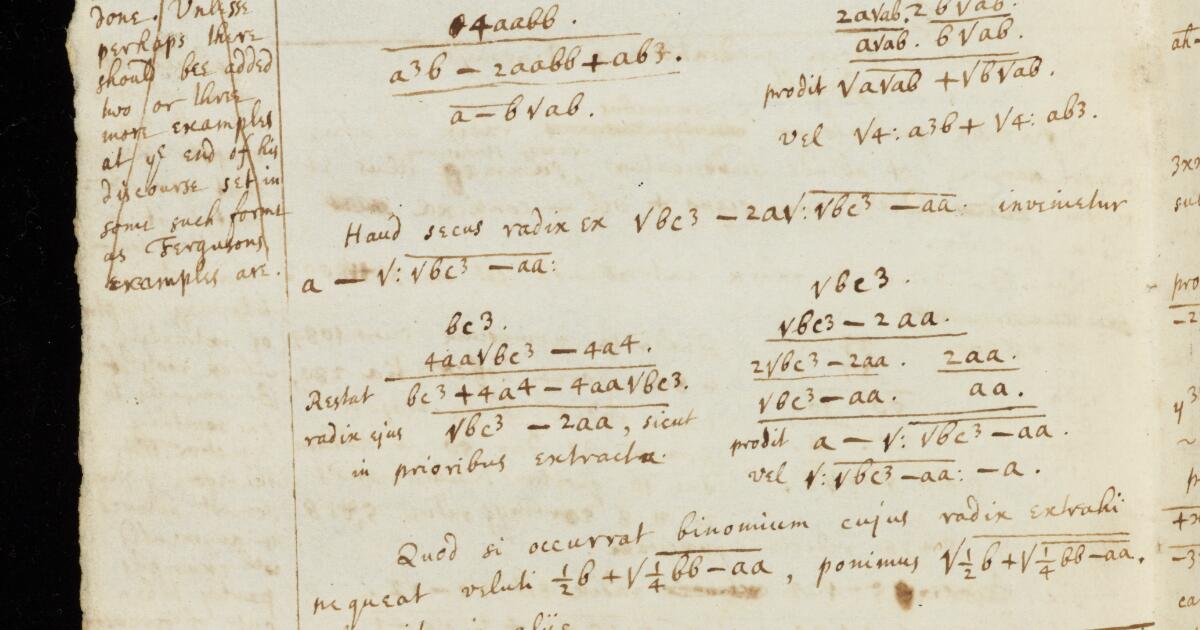 done. Unlesse
perhaps there
should bee added
two or three
more examples
at yͤ end of his
discourse set in
some such forme
as Fergusons
examples are.
4aabb.
a³b − 2aabb + ab3.
a − b √ab.
2a√ab. 2b√ab.
a√ab. b√ab.
prodit √a√ab + √b√ab.
vel √4: a3b + √4: ab3.
Haud secus radix ex √bc3 − 2a√: √bc3 − aa: invenietur
a − √: √bc3 − aa:
bc3.
4aa√bc3 − 4a4.
Restat bc3 + 4a4 − 4aa√bc3.
radix ejus √bc3 − 2aa, sicut
in prioribus extracta.
√bc3.
√bc3 − 2aa.
2√bc3 − 2aa. 2aa.
√bc3 − aa. aa.
prodit a − √: √bc3 − aa.
vel √: √bc3 − aa: − a.
Quod si occurrat binomium cujus radix extrahi
nequeat veluti ½b + √¼bb − aa, ponimus √½b + √¼bb − aa.
3xx
pro
−2
y3